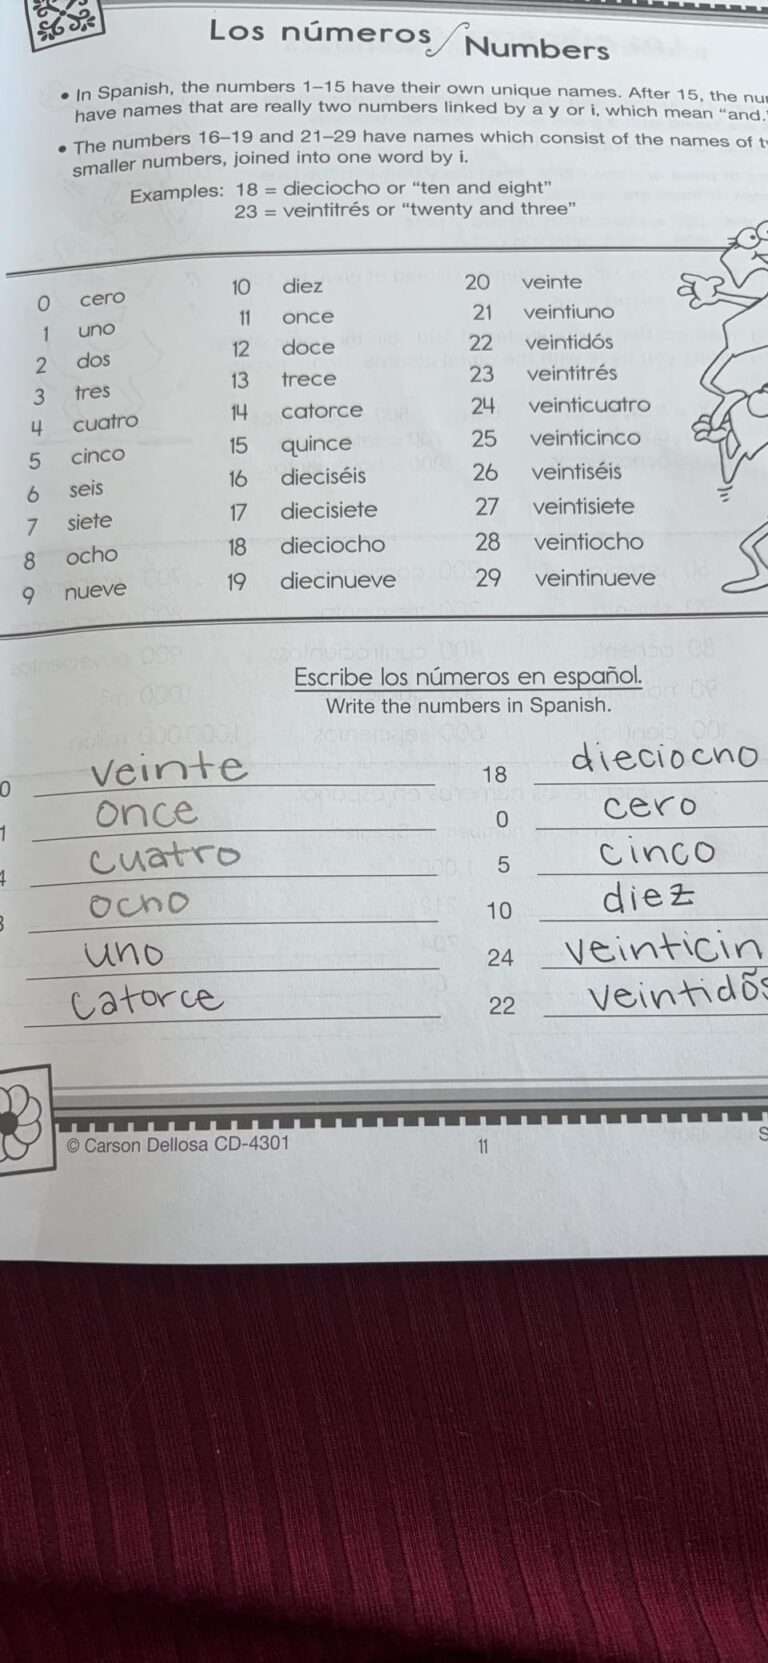 Los números Numbers
• In Spanish, the numbers 1–15 have their own unique names. After 15, the
have names that are really two numbers linked by a y or i, which mean “and.”
• The numbers 16–19 and 21–29 have names which consist of the names of
smaller numbers, joined into one word by i.
Examples: 18 = dieciocho or “ten and eight”
23 = veintitrés or “twenty and three”
0 cero 10 diez 20 veinte
1 uno 11 once 21 veintiuno
2 dos 12 doce 22 veintidós
3 tres 13 trece 23 veintitrés
4 cuatro 14 catorce 24 veinticuatro
5 cinco 15 quince 25 veinticinco
6 seis 16 dieciséis 26 veintiséis
7 siete 17 diecisiete 27 veintisiete
8 ocho 18 dieciocho 28 veintiocho
9 nueve 19 diecinueve 29 veintinueve
Escribe los números en español.
Write the numbers in Spanish.
0 veinte 18 dieciocho
1 once 0 cero
4 cuatro 5 cinco
ocho 10 diez
uno 24 veinticin
catorce 22 veintidós
© Carson Dellosa CD-4301 11